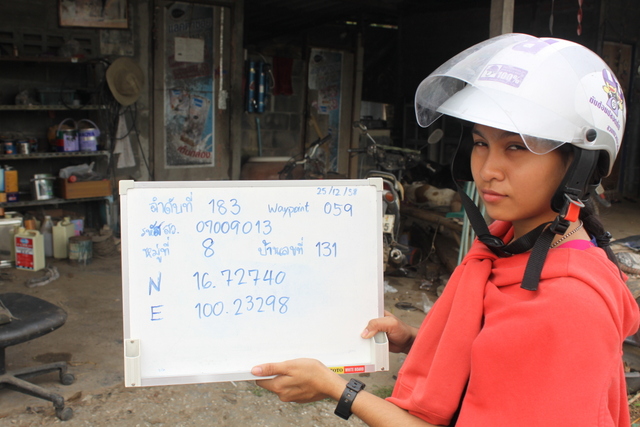 25/12/58
ลำดับที่ 183 Waypoint 059
รหัส สอ. 07009013
หมู่ที่ 8 บ้านเลขที่ 131
N 16.72740
E 100.23298